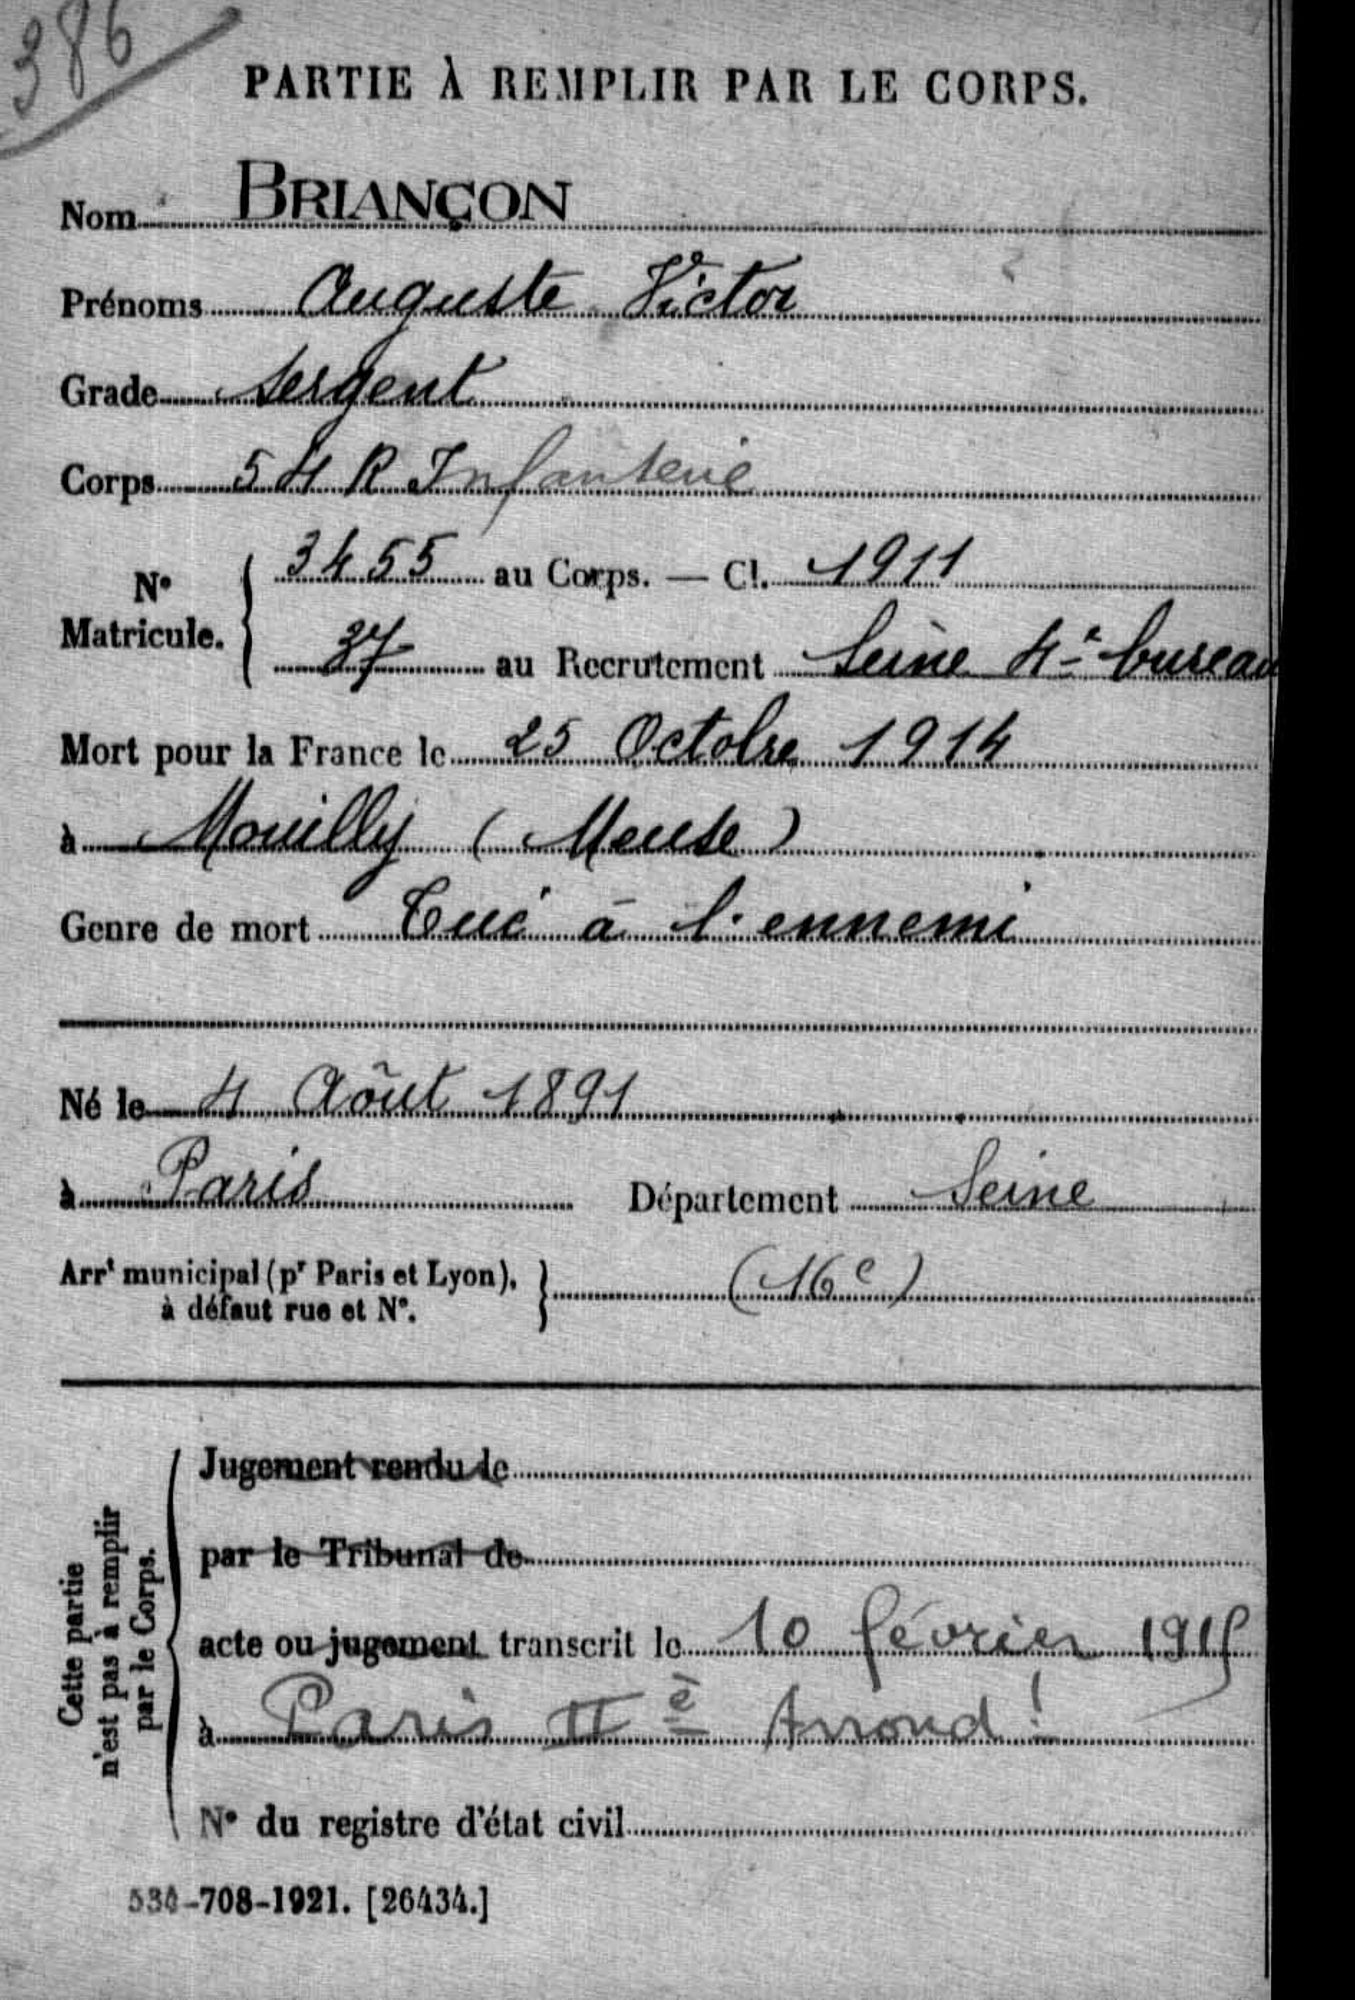 386
PARTIE À REMPLIR PAR LE CORPS.
Nom BRIANÇON
Prénoms Auguste Victor
Grade Sergent
Corps 54 R Infanterie
N° Matricule. { 3455 au Corps. — Cl. 1911
37 au Recrutement Seine 4e bureau
Mort pour la France le 25 Octobre 1914
à Mouilly (Meuse)
Genre de mort Tué à l'ennemi
Né le 4 Aôut 1891
à Paris Département Seine
Arrt municipal (pr Paris et Lyon), à défaut rue et N°. } (16e)
Cette partie n'est pas à remplir par le Corps.
Jugement rendu le
par le Tribunal de
acte ou jugement transcrit le 10 février 1915
à Paris II e Arrond t
N° du registre d'état civil
534-708-1921. [26434.]